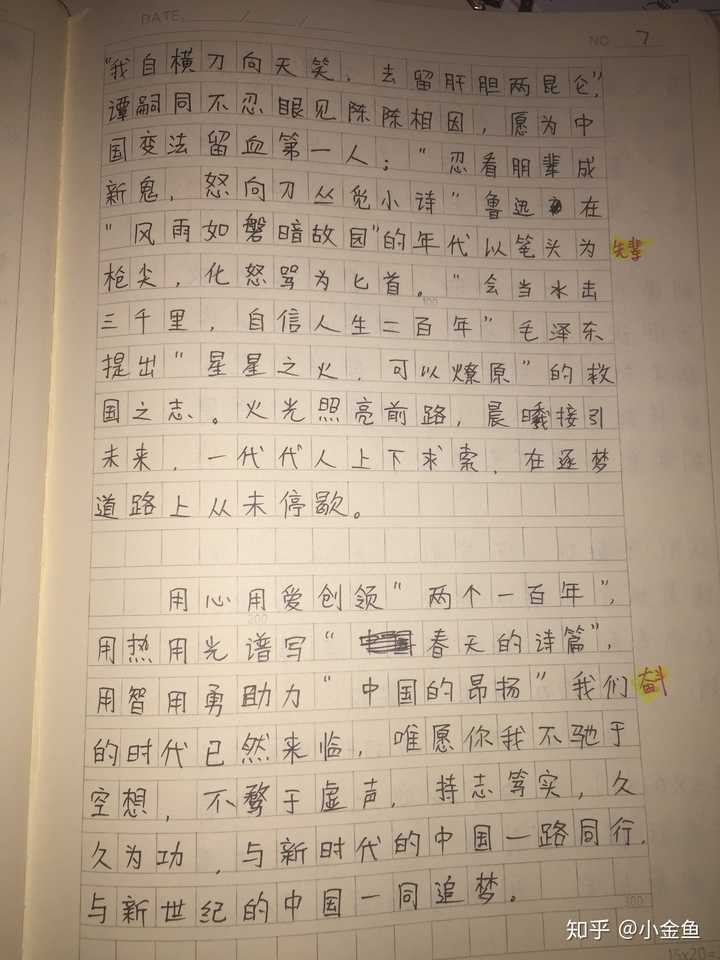 DATE / /
NO 7
“我自横刀向天笑，去留肝胆两昆仑”，
谭嗣同不忍眼见陈陈相因，愿为中
国变法留血第一人；“忍看朋辈成
新鬼，怒向刀丛觅小诗”鲁迅在
“风雨如磐暗故园”的年代以笔头为 先辈
枪尖，化怒骂为匕首。“会当水击
100
三千里，自信人生二百年”毛泽东
提出“星星之火，可以燎原”的救
国之志。火光照亮前路，晨曦接引
未来，一代代人上下求索，在逐梦
道路上从未停歇。
用心用爱创领“两个一百年”，
200
用热用光谱写“春天的诗篇”，
用智用勇助力“中国的昂扬”我们 奋斗
的时代已然来临，唯愿你我不驰于
空想，不骛于虚声，持志笃实，久
久为功，与新时代的中国一路同行，
与新世纪的中国一同追梦。
300
知乎 @小金鱼
15x20=